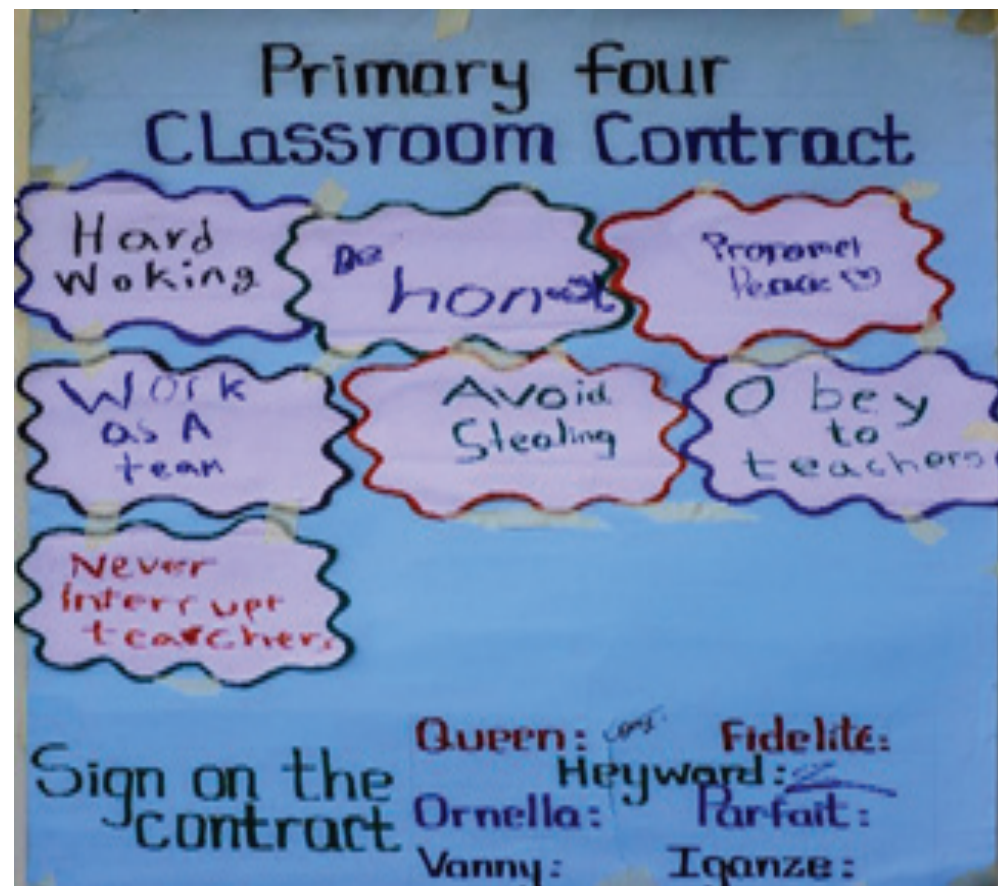 Primary four
CLassroom Contract
Hard
Woking
Be
honest
Propomet
Peace
Work
as A
team
Avoid
Stealing
Obey
to
teachers
Never
Interrupt
tearchers
Sign on the
contract
Queen:
Fidelite:
Heyward:
Ornella:
Parfait:
Vanny:
Iganze: